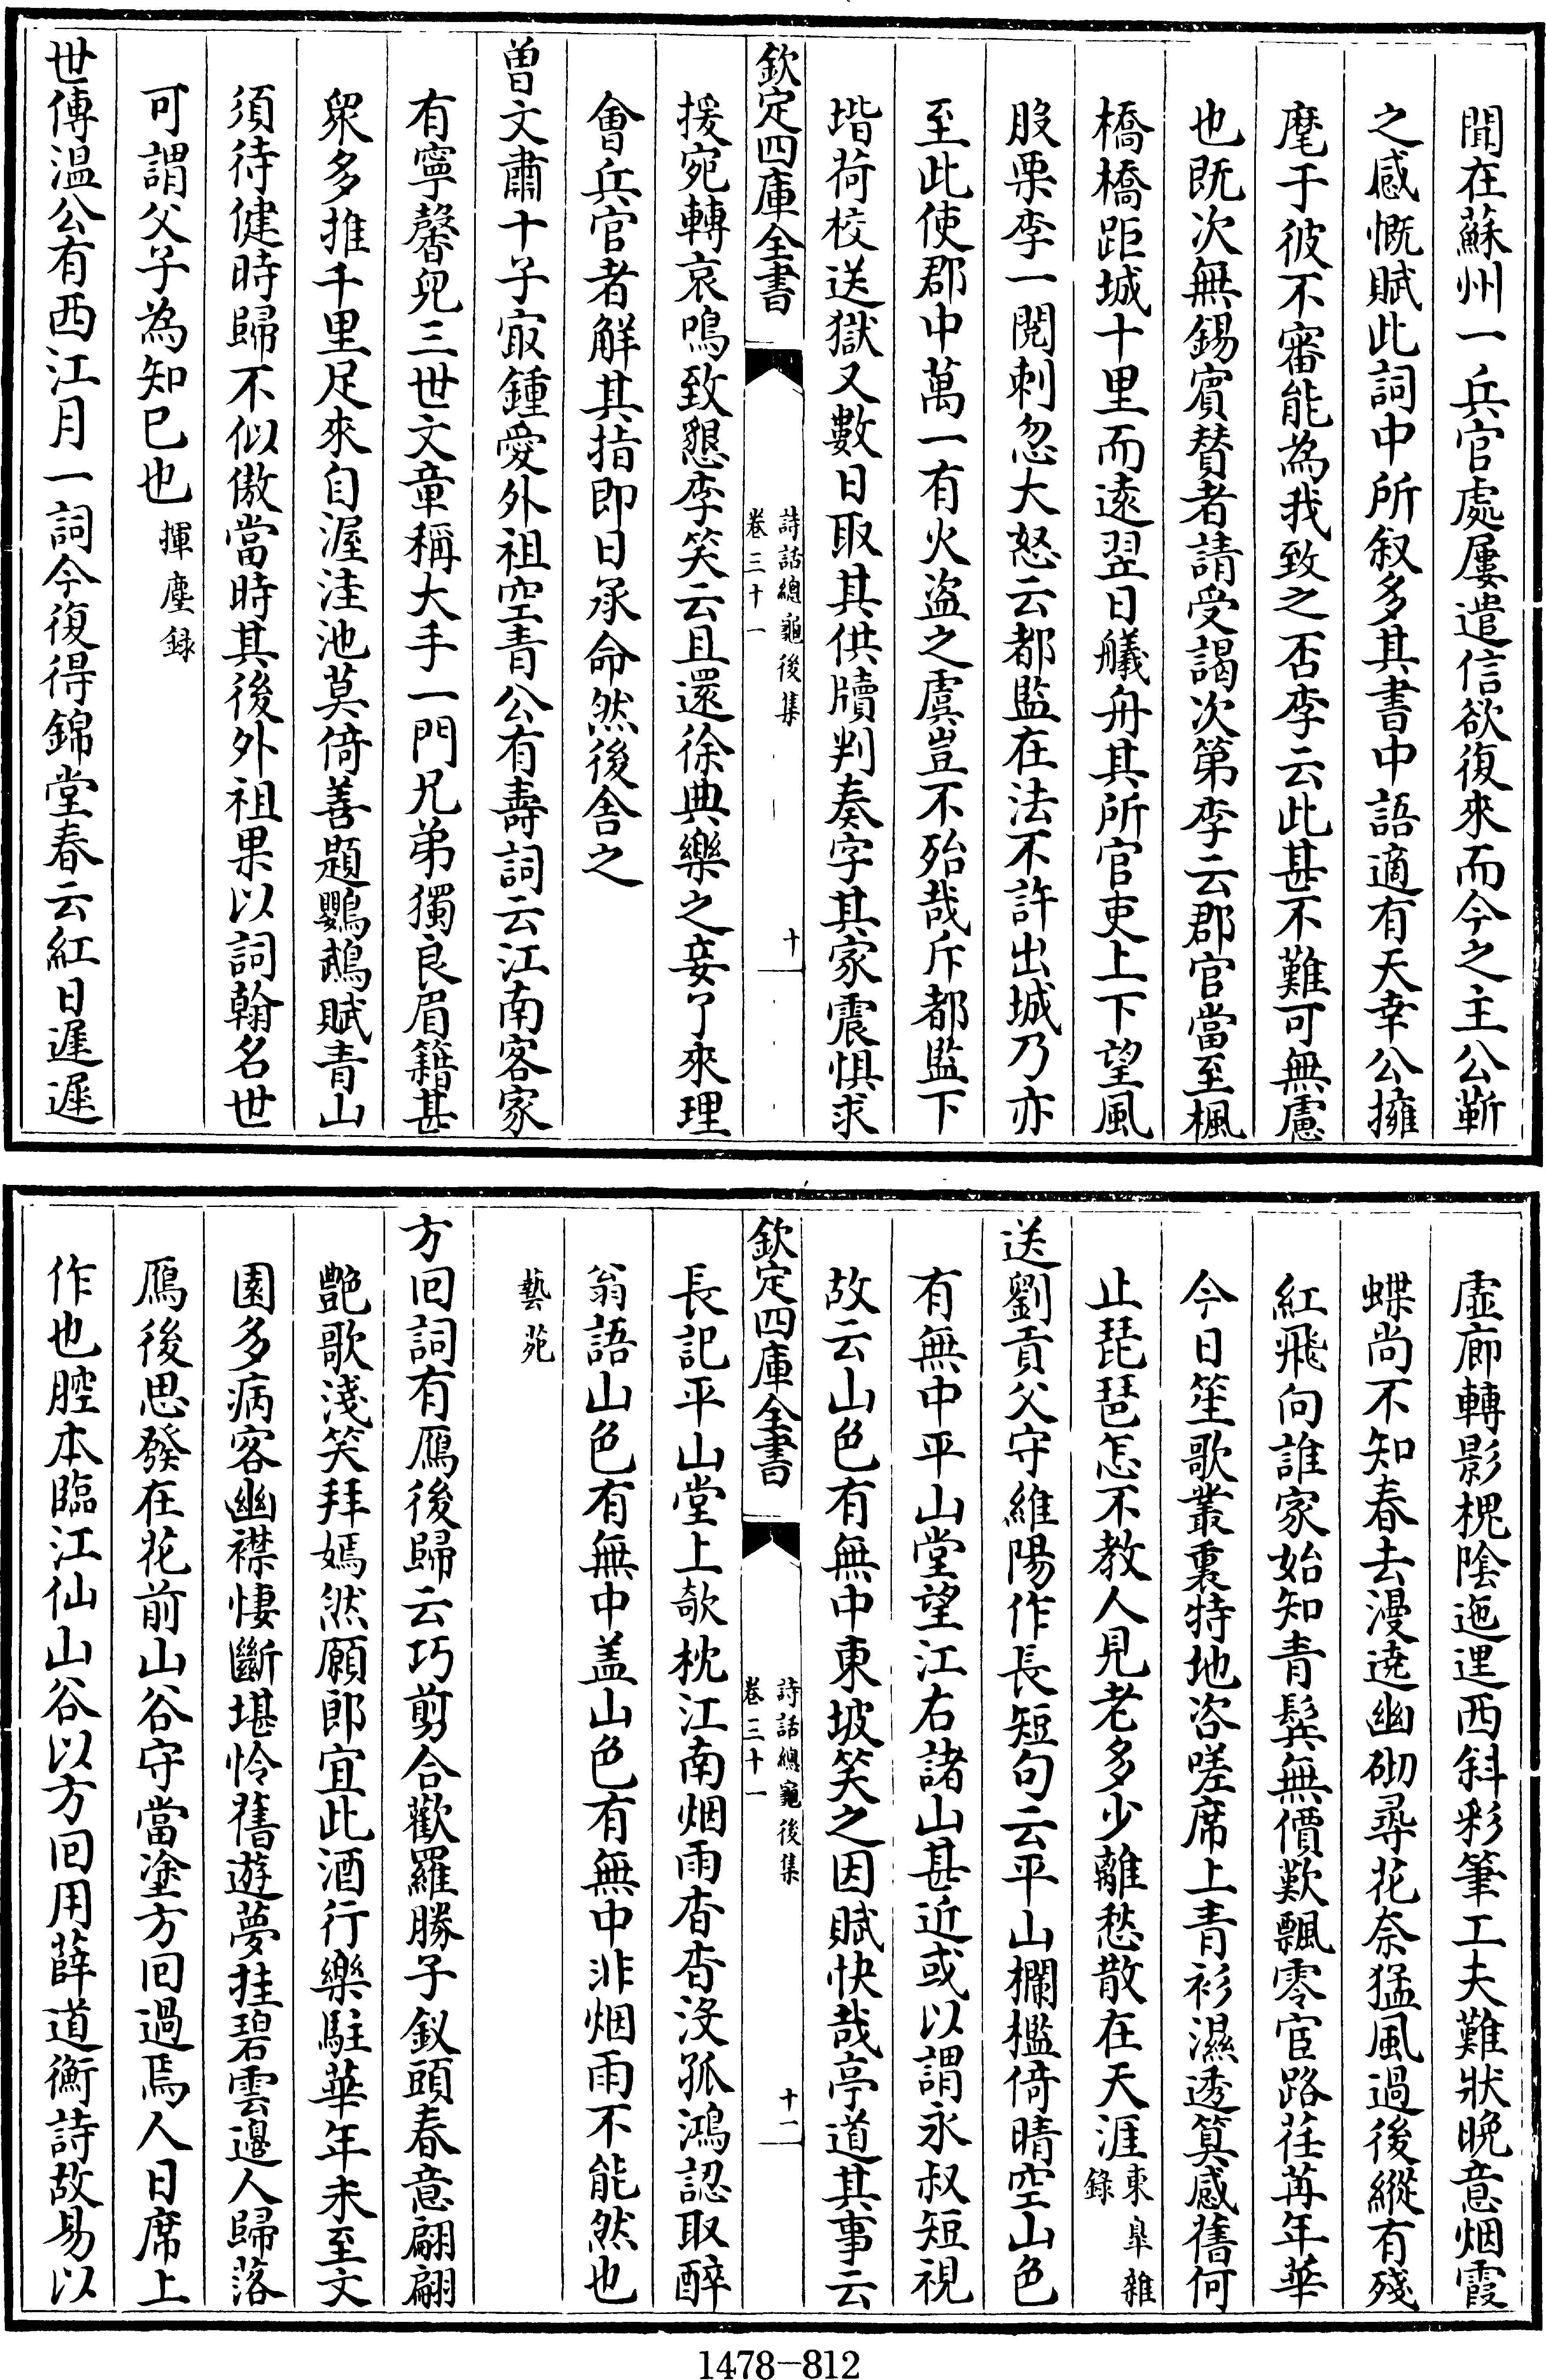 聞在蘇州一兵官處屢遣信欲復來而今之主公靳
之感慨賦此詞中所叙多其書中語適有天幸公擁
麾于彼不審能為我致之否李云此甚不難可無慮
也既次無錫賓賛者請受謁次第李云郡官當至楓
橋橋距城十里而逺翌日艤舟其所官吏上下望風
股栗李一閱刺忽大怒云都監在法不許出城乃亦
至此使郡中萬一有火盜之虞豈不殆哉斥都監下
堦荷校送獄又數日取其供牘判奏字其家震惧求
欽定四庫全書
詩話總龜後集
卷三十一
十
援宛轉哀鳴致懇李笑云且還徐典樂之妾了來理
會兵官者解其指即日承命然後舎之
曽文肅十子㝡鍾愛外祖空青公有壽詞云江南客家
有寧馨兒三世文章稱大手一門兄弟獨良眉籍甚
衆多推千里足來自渥洼池莫倚善題鸚鵡賦青山
須待健時歸不似傲當時其後外祖果以詞翰名世
可謂父子為知已也揮塵録
世傳温公有西江月一詞今復得錦堂春云紅日遲遲
虚廊轉影槐隂迤逦西斜彩筆工夫難狀晩意烟霞
蝶尚不知春去漫遶幽砌尋花奈猛風過後縱有殘
紅飛向誰家始知青鬂無價歎飄零宦路荏苒年華
今日笙歌叢裏特地咨嗟席上青衫濕透筭感舊何
止琵琶怎不教人見老多少離愁散在天涯東臯雜
錄
送劉貢父守維陽作長短句云平山欄檻倚晴空山色
有無中平山堂望江右諸山甚近或以謂永叔短視
故云山色有無中東坡笑之因賦快哉亭道其事云
欽定四庫全書
詩話總龜後集
卷三十一
十一
長記平山堂上欹枕江南烟雨杳杳沒孤鴻認取醉
翁語山色有無中盖山色有無中非烟雨不能然也
藝苑
方回詞有鴈後歸云巧剪合歡羅勝子釵頭春意翩翩
艶歌淺笑拜嫣然願郎宜此酒行樂駐華年未至文
園多病客幽襟悽斷堪怜舊遊夢挂碧雲邉人歸落
鴈後思發在花前山谷守當塗方回過焉人日席上
作也腔本臨江仙山谷以方回用薛道衡詩故易以
1478—812